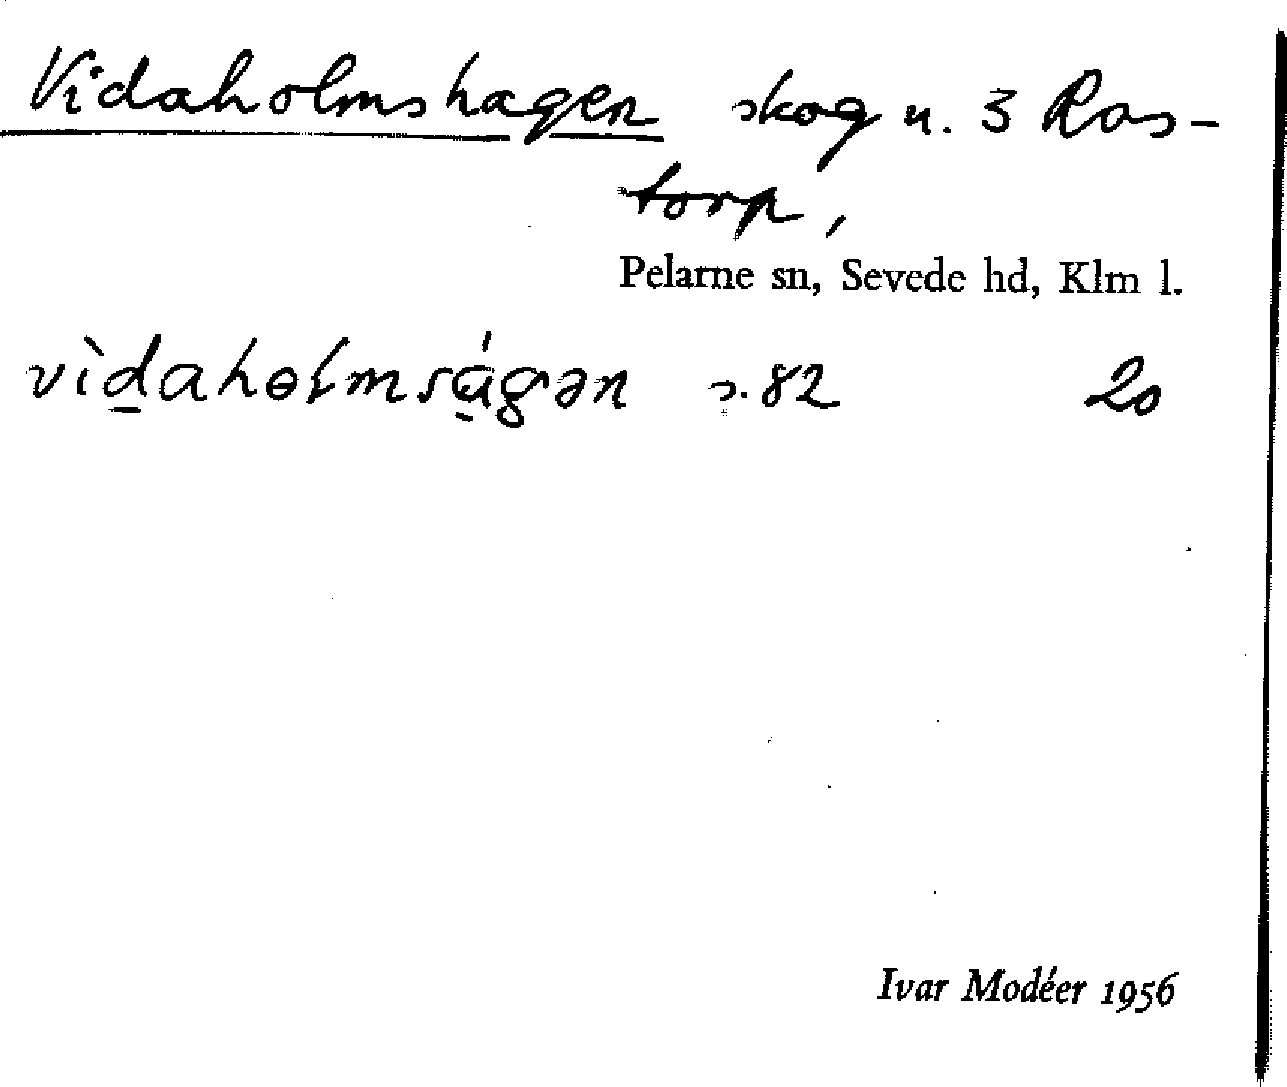 Vidaholmshagen skog u. 3 Ros-
torp,
Pelarne sn, Sevede hd, Klm l.
vìd̲aholmsá̲gən s. 82 20
Ivar Modéer 1956